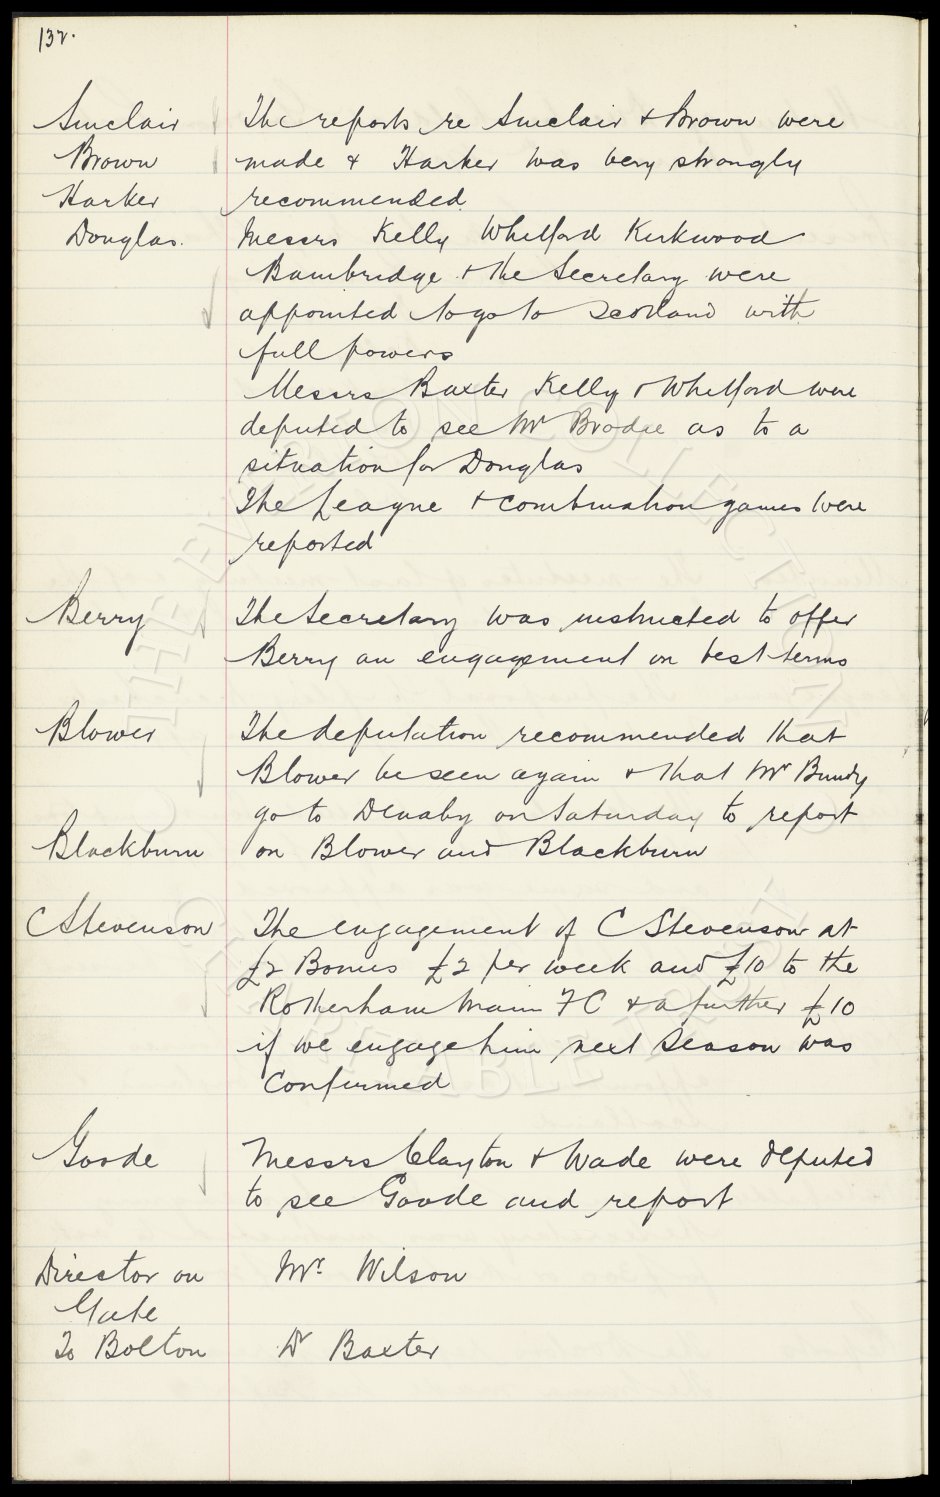 132.
Sinclair The reports re Sinclair & Brown were
Brown made & Harker was very strongly
Harker recommended.
Douglas. Messrs Kelly Whitford Kirkwood
Bainbridge & the Secretary were
appointed to go to Scotland with
full powers
Messrs Baxter Kelly & Whitford were
deputed to see Mr Brodie as to a
situation for Douglas
The League & Combination games were
reported
Berry The Secretary was instructed to offer
Berry an engagement on best terms
Blower The deputation recommended that
Blower be seen again & that Mr Bundy
go to Denaby on Saturday to report
Blackburn on Blower and Blackburn
C Stevenson The engagement of C Stevenson at
£2 Bonus £2 per week and £10 to the
Rotherham Main FC & a further £10
if we engage him next Season was
Confirmed
Goode Messrs Clayton & Wade were deputed
to see Goode and report
Director on Mr. Wilson
Gate
To Bolton Dr Baxter
THE EVERTON COLLECTION
CHARITABLE TRUST